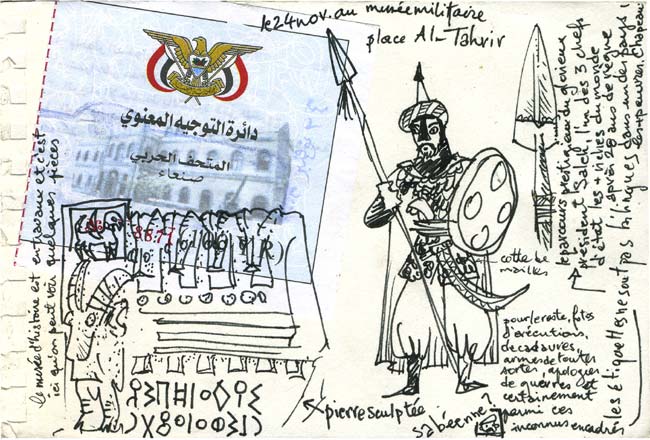 le 24 nov. au musée militaire
place Al-Tahrir
دائرة التوجيه المعنوي
المتحف الحربي
صنعاء
le musée d'histoire est en travaux et c'est
ici qu'on peut voir quelques pièces
cotte de
mailles
le parcours prestigieux du glorieux
président Saleh, l'un des 3 chefs
d'état les + riches du monde
après 28 ans de règne
dans un des pays
les + pauvres. Chapeau!
les étiquettes ne sont pas bilingues!
pour le reste, fotos
d'exécutions,
de cadavres,
armes de toutes
sortes, apologies
de guerres et
certainement
parmi ces
inconnus encadrés
pierre sculptée
sabéenne?